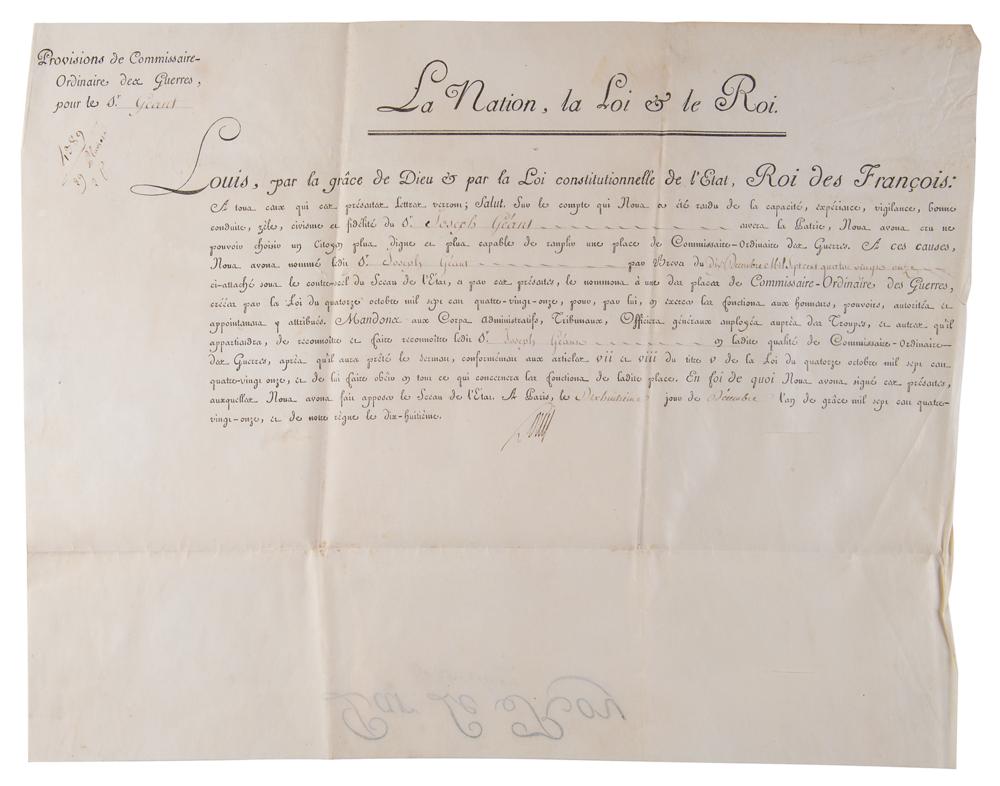 Provisions de Commissaire-
Ordinaire des Guerres,
pour le S.r Géant
1089
La Nation, la Loi & le Roi.
Louis, par la grâce de Dieu & par la Loi constitutionnelle de l'Etat, Roi des François:
A tous ceux qui ces présentes Lettres verront; Salut. Sur le compte qui Nous a été rendu de la capacité, expérience, vigilance, bonne
conduite, zèle, civisme et fidélité du S.r Joseph Géant envers la Patrie, Nous avons cru ne
pouvoir choisir un Citoyen plus digne et plus capable de remplir une place de Commissaire-Ordinaire des Guerres. A ces causes,
Nous avons nommé ledit S.r Joseph Géant par Brevet du Dix Décembre Mil Sept cent quatre vingt onze
ci-attaché sous le contre-scél du Sceau de l'Etat, et par ces présentes, le nommons à une des places de Commissaire-Ordinaire des Guerres,
créées par la Loi du quatorze octobre mil sept cent quatre-vingt-onze, pour, par lui, en exercer les fonctions aux honneurs, pouvoirs, autorités et
appointemens y attribués. Mandons aux Corps administratifs, Tribunaux, Officiers généraux employés auprès des Troupes, et autres qu'il
appartiendra, de reconnoître et faire reconnoître ledit S.r Joseph Géant en ladite qualité de Commissaire-Ordinaire-
des Guerres, après qu'il aura prêté le serment, conformément aux articles vii et viii du titre v de la Loi du quatorze octobre mil sept cent
quatre-vingt onze, et de lui faire obéir en tout ce qui concernera les fonctions de ladite place. En foi de quoi Nous avons signé ces présentes,
auxquelles Nous avons fait apposer le Sceau de l'Etat. A Paris, le Dixhuitième jour de Décembre l'an de grâce mil sept cent quatre-
vingt-onze, et de notre règne le dix-huitième.
Louis
Par Le Roy